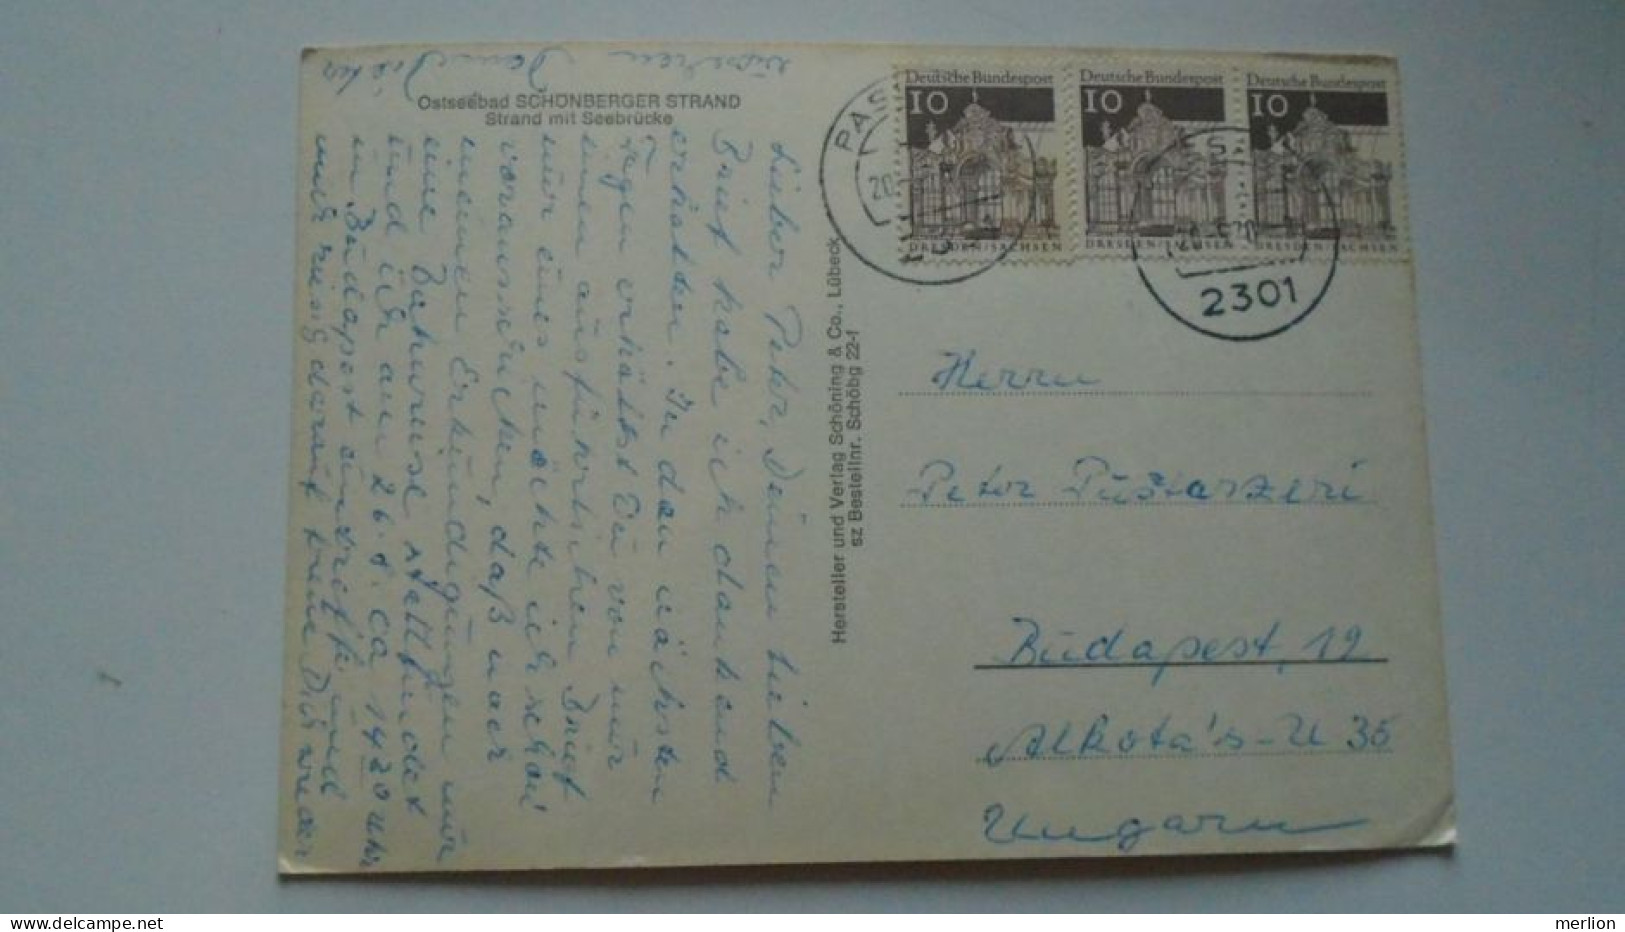 Ostseebad SCHÖNBERGER STRAND
Strand mit Seebrücke
Lieber Peter, Deinen lieben
Brief habe ich dankend
erhalten. In den nächsten
Tagen erhältst Du von mir
einen ausführlichen Brief
nur eines möchte ich schon
vorausschicken, daß nach
meinen Erkündigungen nur
eine Bahnreise stattfindet
und ich am 26.8. ca 1420 Uhr
in Budapest eintreffe und
mich riesig darauf freue Dich wieder
Hersteller und Verlag Schöning & Co., Lübeck
sz Bestellnr. Schöbg 22-1
Deutsche Bundespost
10
DRESDEN/SACHSEN
Deutsche Bundespost
10
DRESDEN/SACHSEN
Deutsche Bundespost
10
DRESDEN/SACHSEN
2301
Herrn
Peter Pusztaszeri
Budapest, 12
Alkota's-U 35
Ungarn
merlion